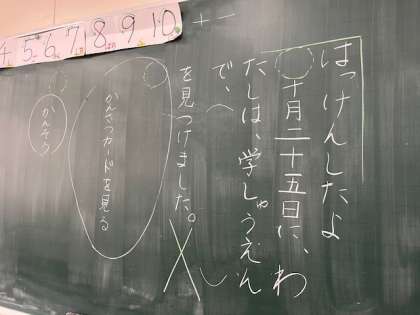 4 5 6 7 8 9 10
はっけんしたよ
十月二十五日に、わ
たしは、学しゅうえん
で、
を見つけました。
かんさつカードを見る
かんそう